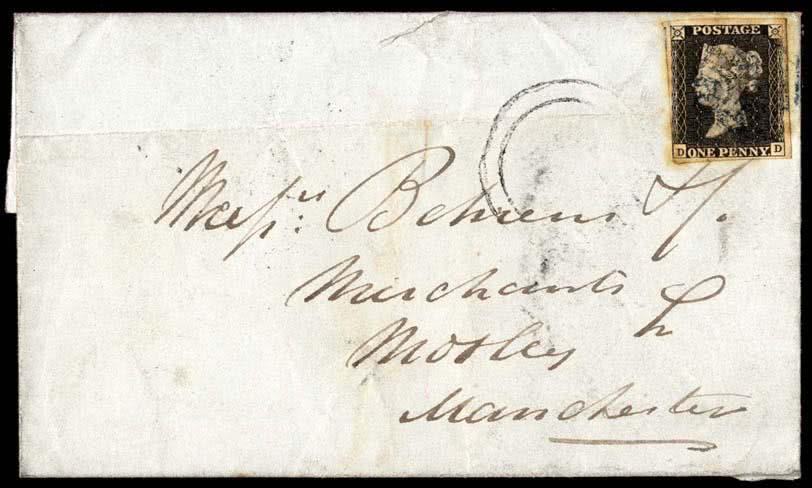 POSTAGE
D ONE PENNY D
Messrs: Behrens
Merchants
Mosley
Manchester